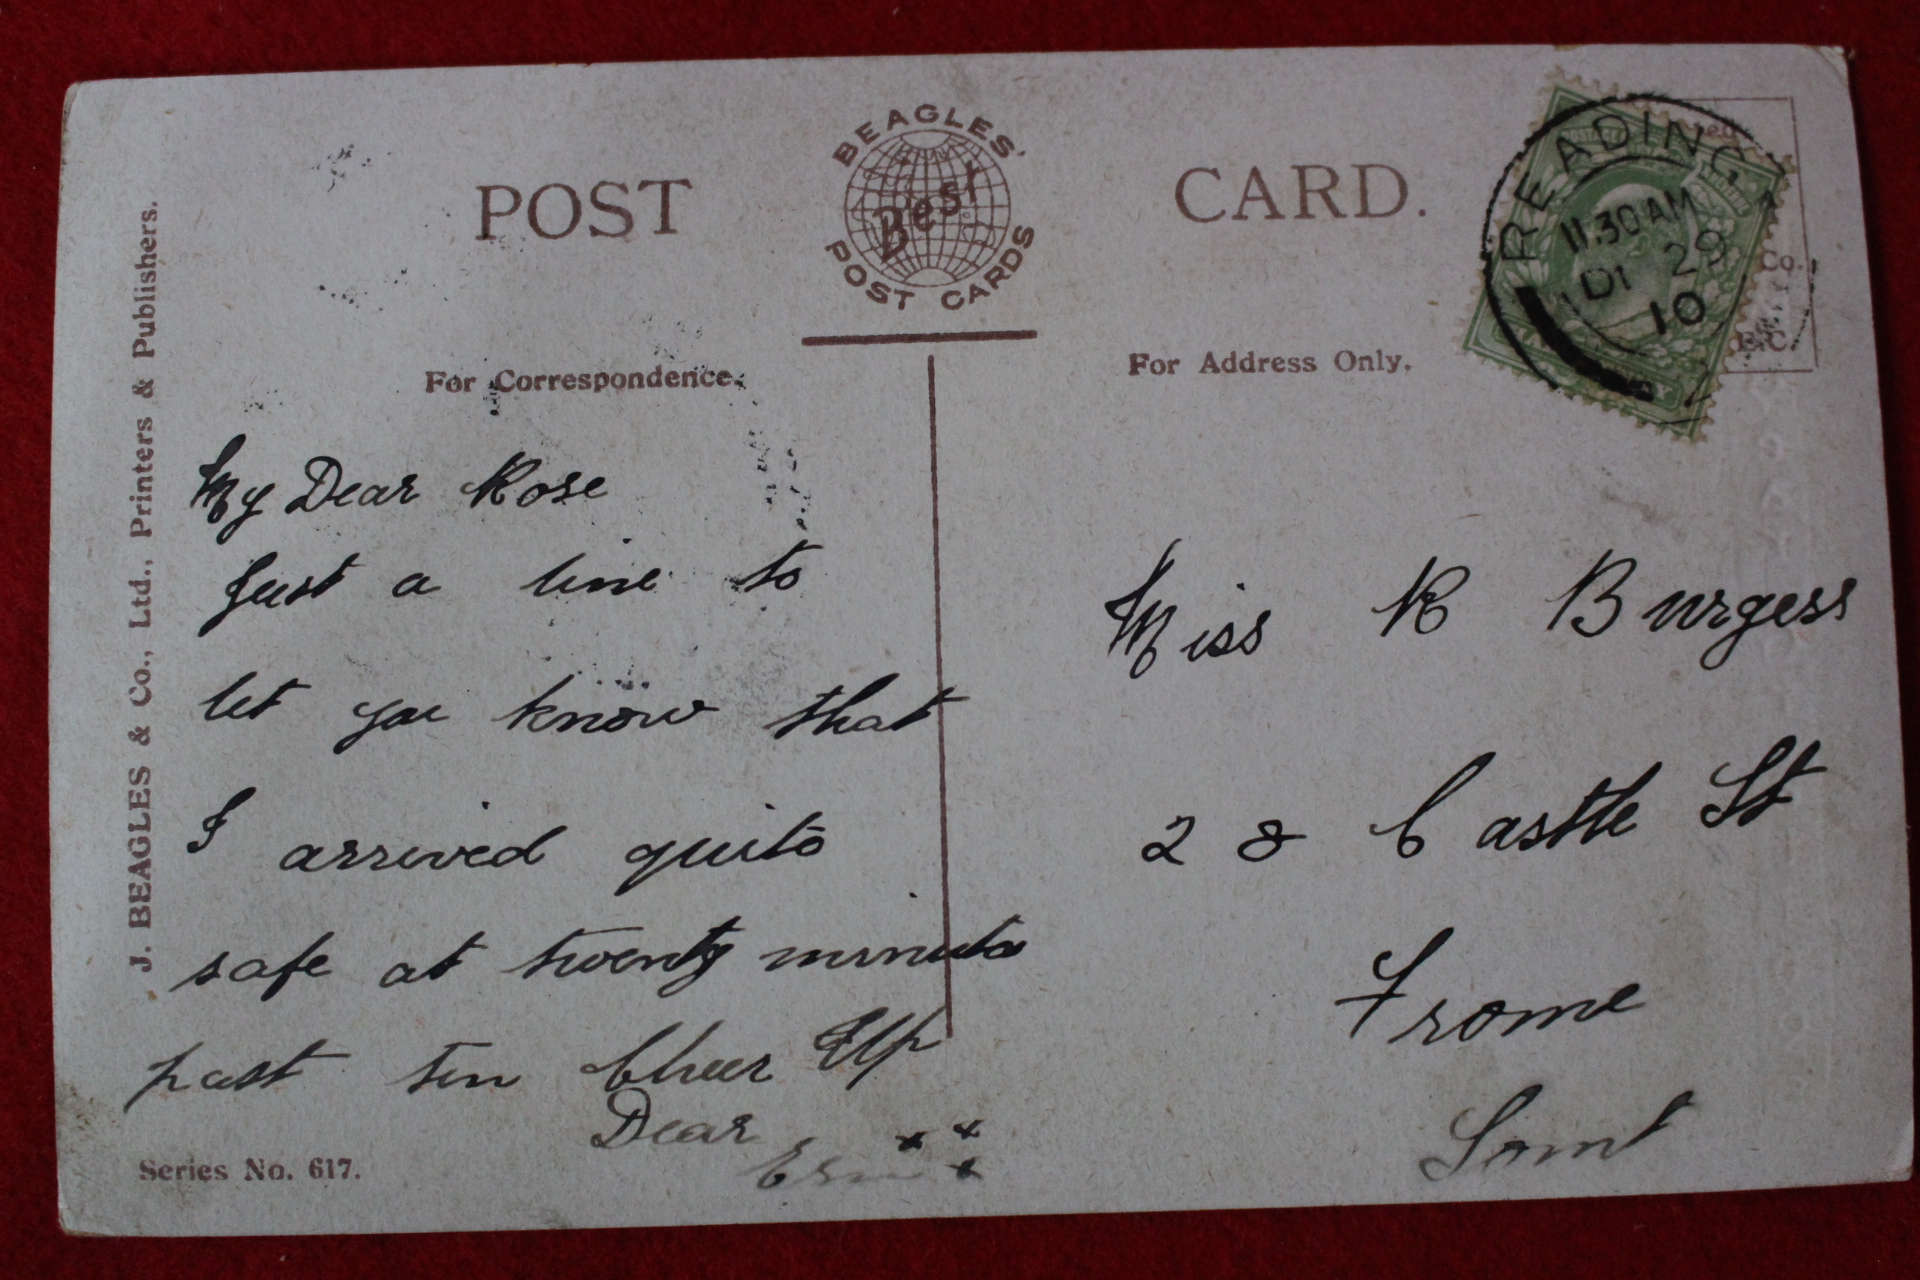 POST
BEAGLES'
Best
POST CARDS
CARD.
READING
11.30 AM
29
10
POSTAGE
Co.
E.C.
J. BEAGLES & Co., Ltd., Printers & Publishers.
For Correspondence.
For Address Only.
My Dear Rose
Just a line to
let you know that
I arrived quite
safe at twenty minute
past ten Cheer Up
Dear
x x
x
Series No. 617.
Miss R Burgess
28 Castle St
Frome
Somt